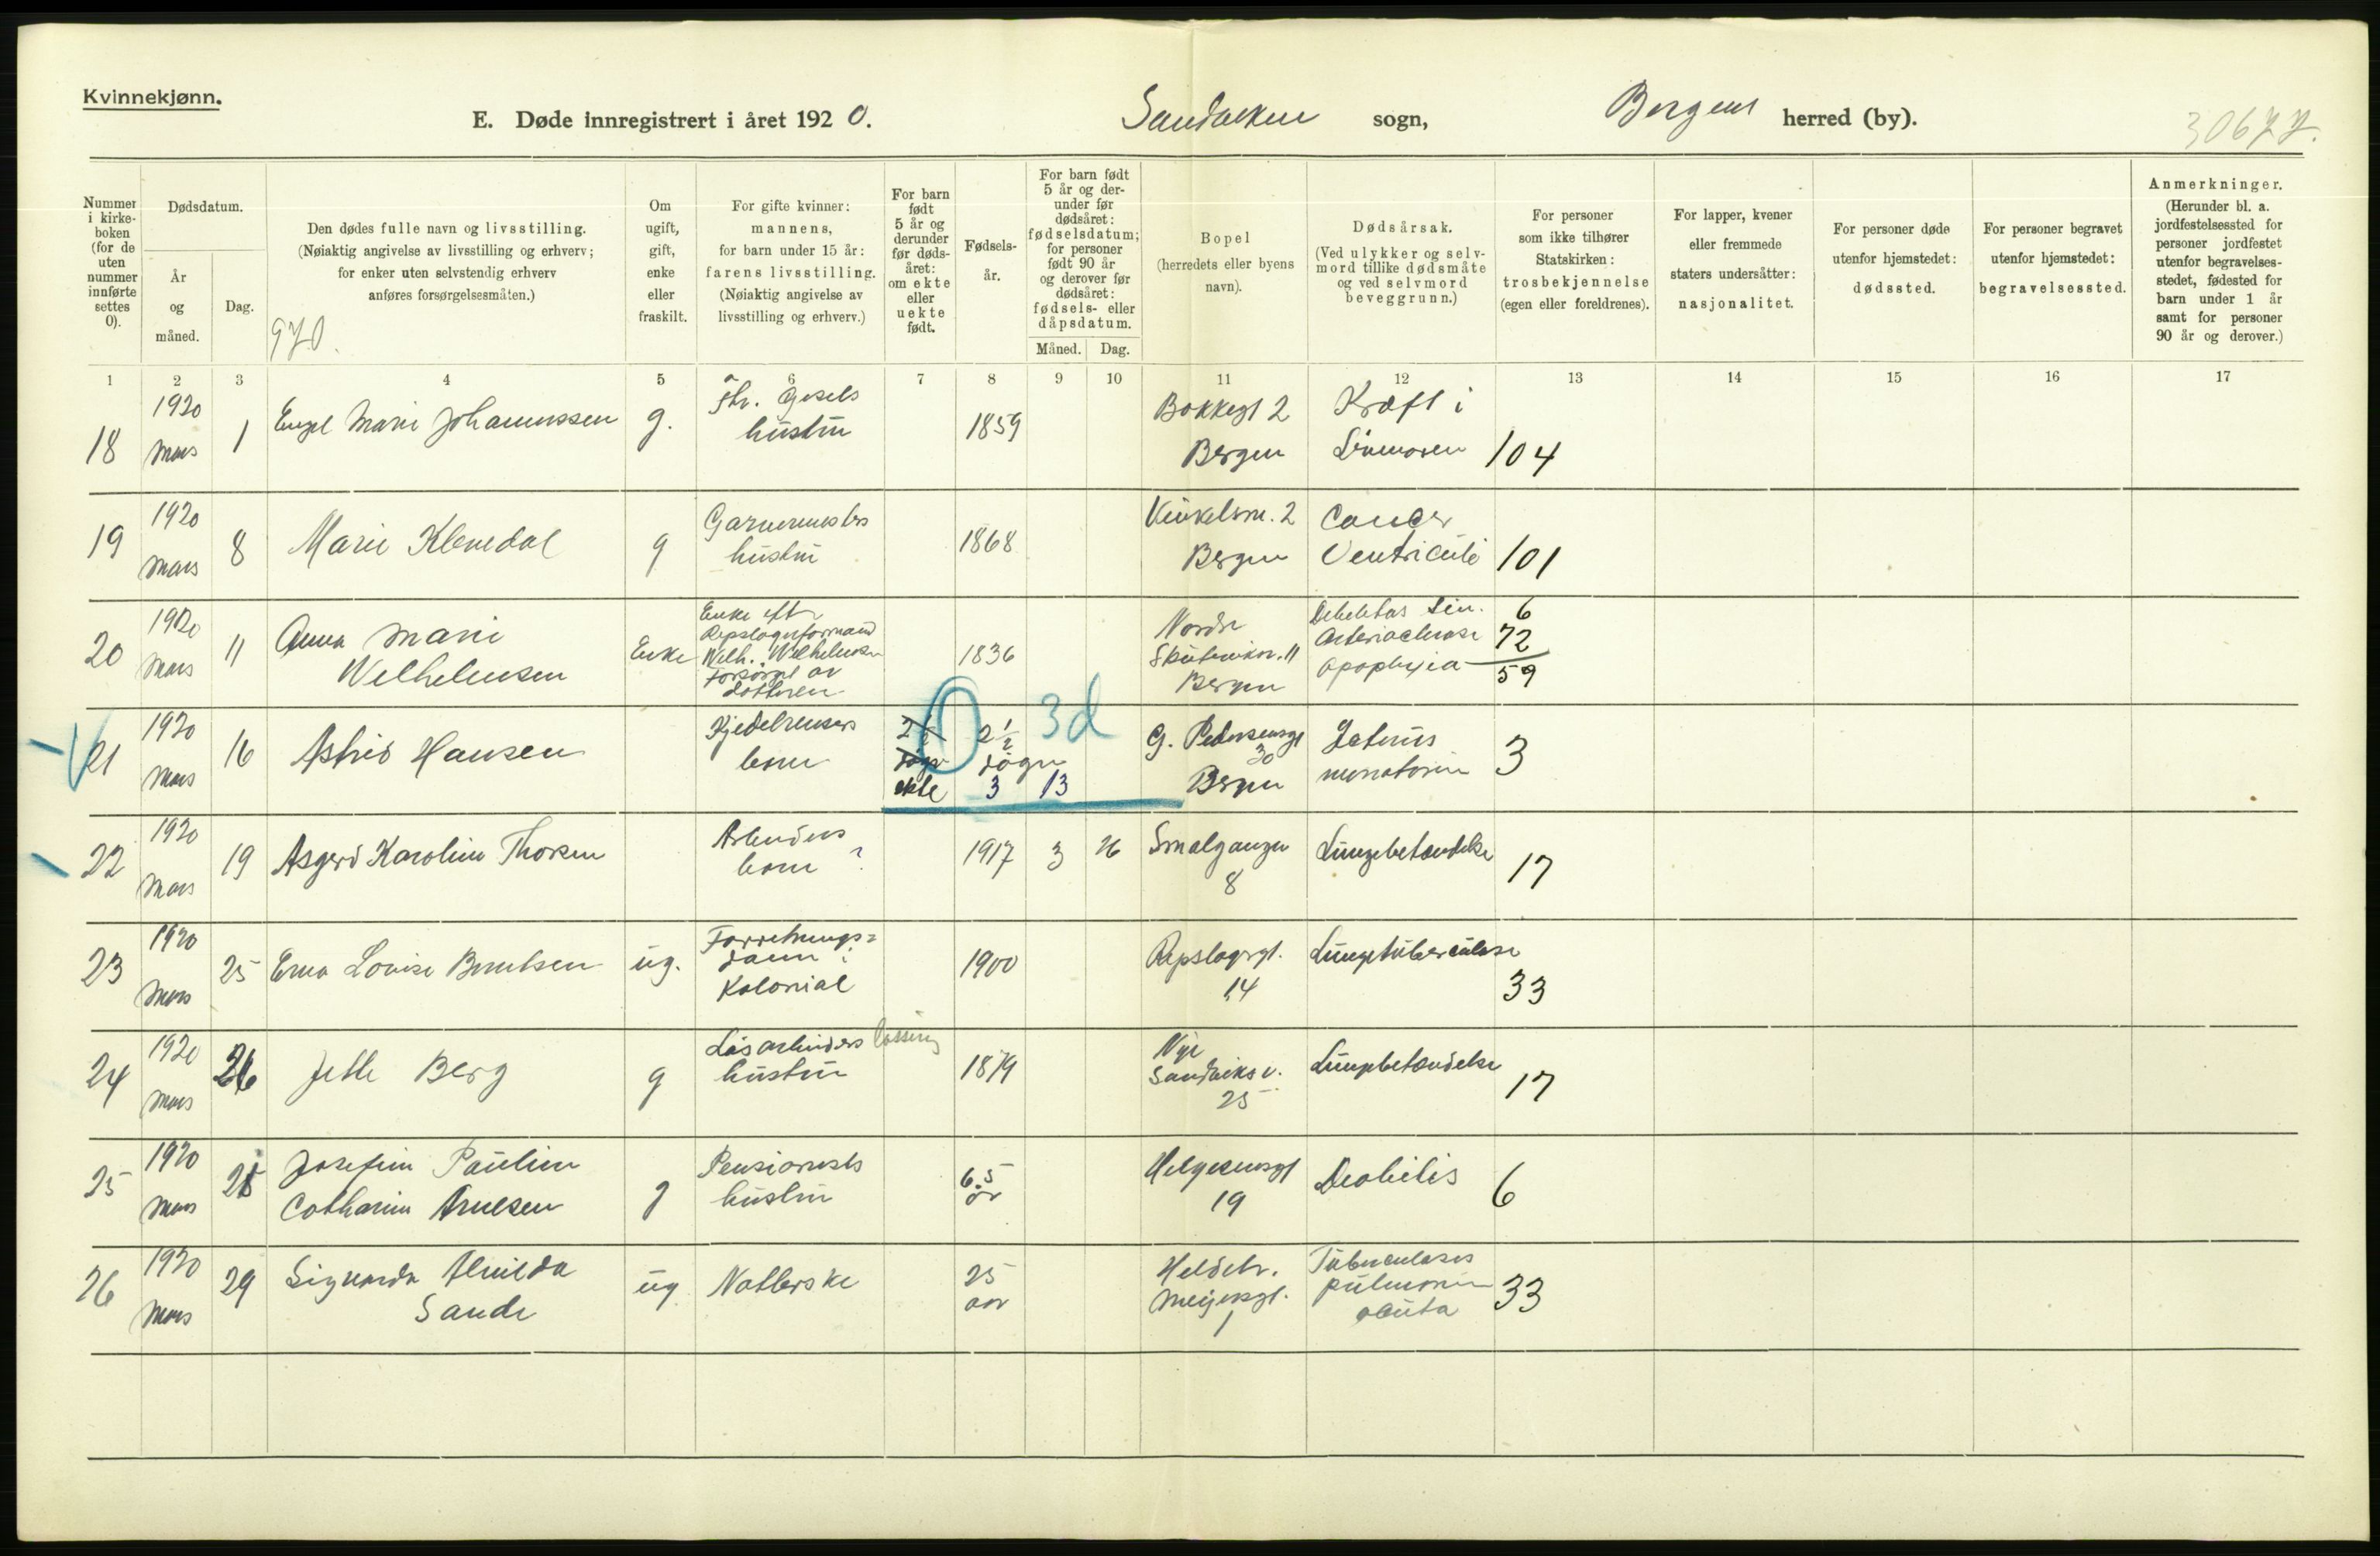 Kvinnekjønn.
E. Døde innregistrert i året 1920. Sandviken sogn, Bergens herred (by).
30677.
Nummer i kirke-boken (for de uten nummer innførte settes 0).
Dødsdatum.
År og måned.
Dag.
Den dødes fulle navn og livsstilling.
(Nøiaktig angivelse av livsstilling og erhverv;
for enker uten selvstendig erhverv
anføres forsørgelsesmåten.)
970.
Om ugift, gift, enke eller fraskilt.
For gifte kvinner:
mannens,
for barn under 15 år:
farens livsstilling.
(Nøiaktig angivelse av
livsstilling og erhverv.)
For barn født 5 år og derunder før døds-året: om ekte eller uekte født.
Fødsels-år.
For barn født 5 år og der-under før dødsåret: fødselsdatum; for personer født 90 år og derover før dødsåret: fødsels- eller dåpsdatum.
Måned. Dag.
Bopel
(herredets eller byens
navn).
Dødsårsak.
(Ved ulykker og selv-
mord tillike dødsmåte
og ved selvmord
beveggrunn.)
For personer
som ikke tilhører
Statskirken:
trosbekjennelse
(egen eller foreldrenes).
For lapper, kvener
eller fremmede
staters undersåtter:
nasjonalitet.
For personer døde
utenfor hjemstedet:
dødssted.
For personer begravet
utenfor hjemstedet:
begravelsessted.
Anmerkninger.
(Herunder bl. a.
jordfestelsessted for
personer jordfestet
utenfor begravelses-
stedet, fødested for
barn under 1 år
samt for personer
90 år og derover.)
1 2 3 4 5 6 7 8 9 10 11 12 13 14 15 16 17
18 1920 Mars 1 Engel Marie Johannessen g. hustru 1859 Bakkegt 2 Bergen Kræft i 104
19 1920 Mars 8 Marie g hustru 1868 2 Bergen Cancer Ventriculi 101
20 1920 Mars 11 Anna Marie Wilhelmsen Enke Enke eft. Repslagerformand Wilh. Wilhelmsen Forsørget av datteren 1836 Nordre 11 Bergen Debilitas sen. 6 Arteriosclerose 72 Apoplexia 59
21 1920 Mars 16 Astrid Hansen Kjedelrensers barn 2½ døgn ekte 2½ døgn 3 13 0 3d G. Pedersensgt 30 Bergen Icterus neonatorum 3
22 1920 Mars 19 Asgerd Karoline Thorsen Arbeiders barn ? 1917 3 26 Smalgangen 8 Lungebetændelse 17
23 1920 Mars 25 Erna Lovise Berntsen ug. Forretnings=dame i Kolonial 1900 Repslagergt. 14 Lungetuberculose 33
24 1920 Mars 26 Jette Berg g Løsarbeiders lossing hustru 1879 Nye Sandviks v. 25 Lungebetændelse 17
25 1920 Mars 28 Josefine Pauline Catharine Arnesen g Pensionists hustru 65 år Helgesensgt 19 Diabetis 6
26 1920 Mars 29 Sigvarda Almida Sande ug Natterske 25 aar Meijersgt. 1 Tuberculosis pulmonum acuta 33